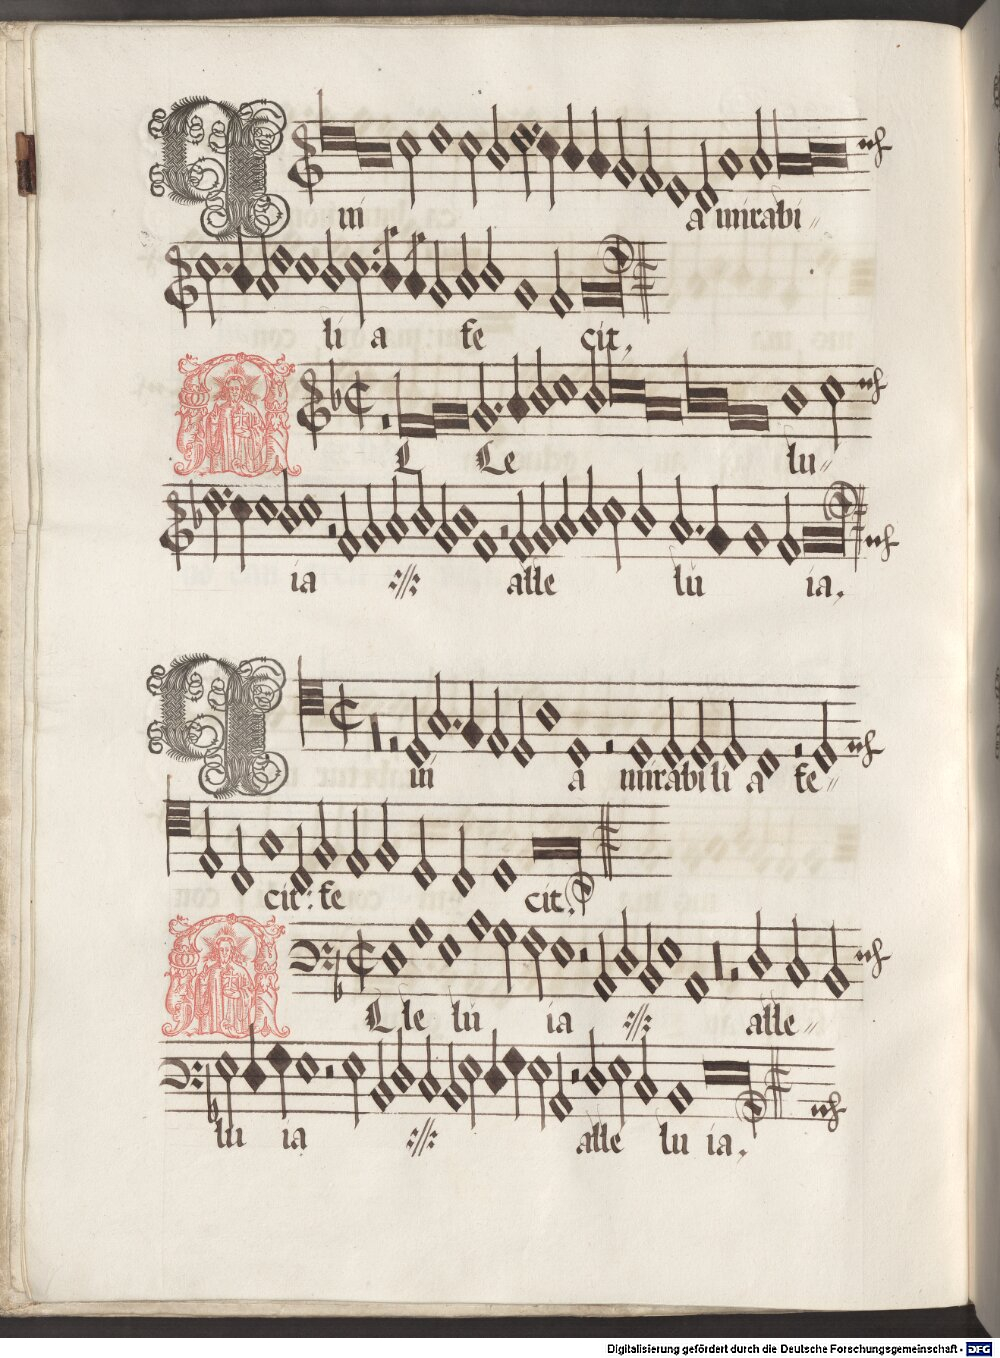 Qui a mirabi
li a fe cit.
A L Le lu
ia :/: alle lu ia.
Qui a mirabili a fe
cit: fe cit.
A L le lu ia :/: alle
lu ia :/: alle lu ia.
Digitalisierung gefördert durch die Deutsche Forschungsgemeinschaft - DFG